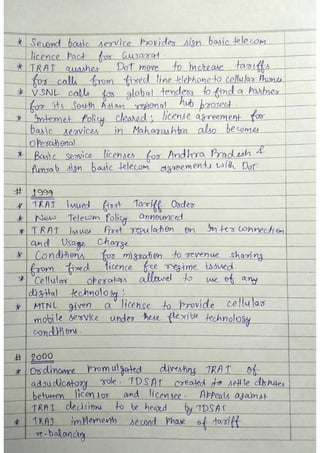 * Second basic service provides sign basic telecom
licence pact for Gujarat.
* TRAI quashes DoT move to increase tariffs
for calls from fixed line telephone to cellular phones
* VSNL calls for global tenders to find a partner
for its South Asian regional hub project.
* Internet Policy cleared; license agreement for
basic services in Maharashtra also becomes
operational
* Basic service licenses for Andhra Pradesh &
Punjab sign basic telecom agreements with DoT
# 1999
* TRAI issued first Tariff Order
* New Telecom Policy announced
* TRAI issues first regulation on Interconnection
and Usage Charge
* Conditions for migration to revenue sharing
from fixed licence fee regime issued
* Cellular operators allowed to use of any
digital technology;
* MTNL given a license to provide cellular
mobile service under these flexible technology
conditions.
# 2000
* Ordinance promulgated divesting TRAI of
adjudicatory role. TDSAT created to settle disputes
between licensor and licensee. Appeals against
TRAI decisions to be heard by TDSAT
* TRAI implements second phase of tariff
re-balancing.